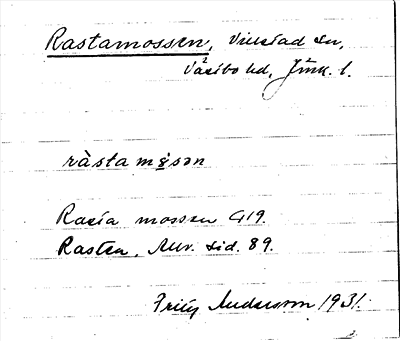 Rastamossen, Villstad sn,
Västbo hd, Jönk. l.
ràsta mȯsən
Rasta mossen G19.
Rasten, Auv. sid. 89.
Fritz Andersson 1931.